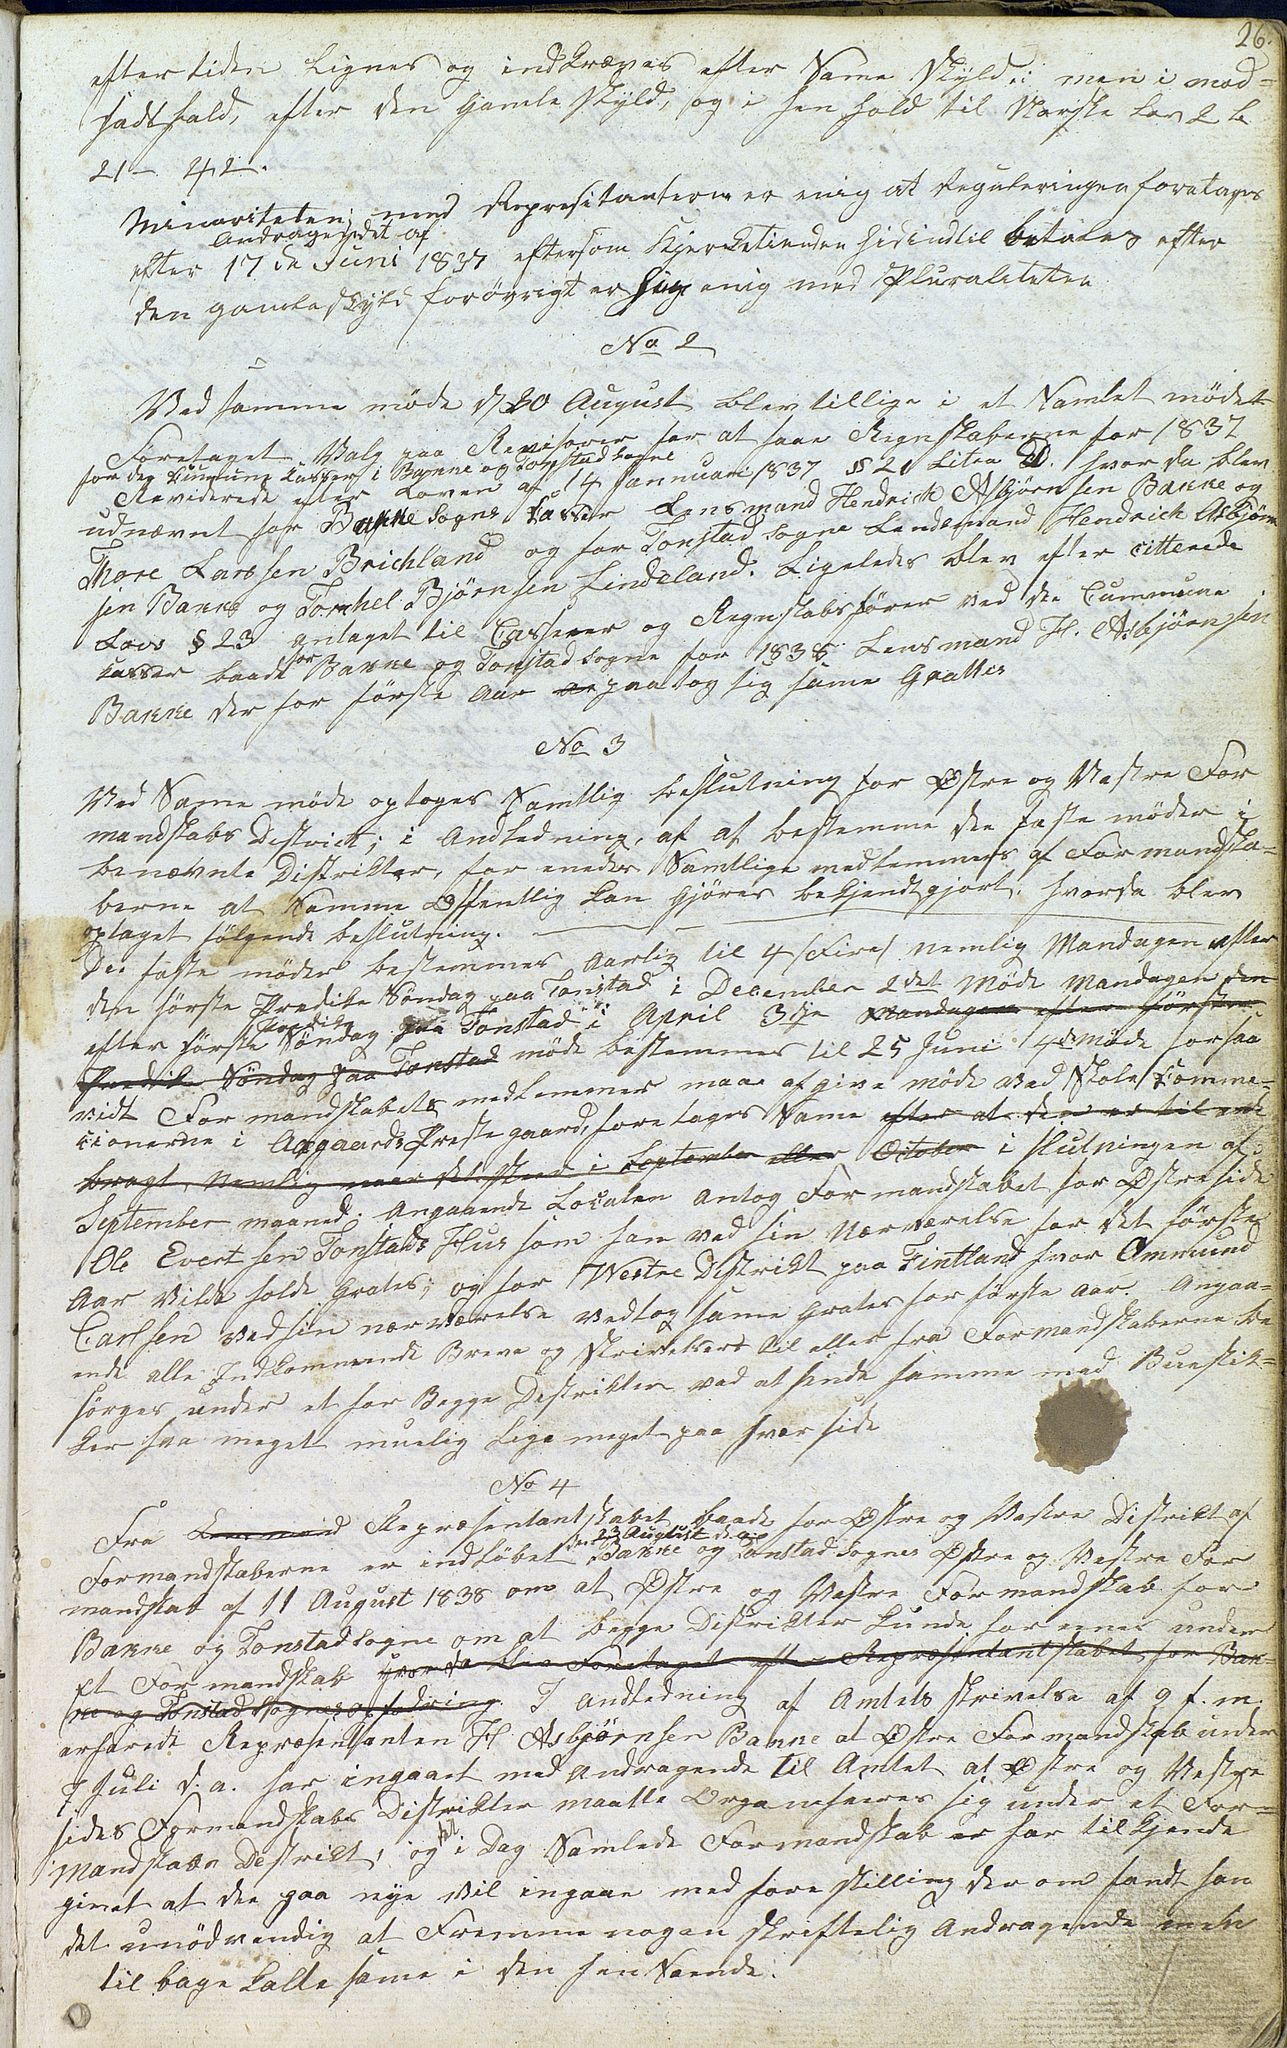 26.
efter tiden Lignes og indkræves efter Same Skyld: men i mod-
sadt fald, efter den Gamle Skyld, og i hen hold til Norske Lov 2 B
21 - 42.
Minoriteten; med Represitanterne er enig at Reguleringen foretages
Andragendet af
efter 17 de Juni 1837 eftersom Kjerketienden hidindtil betales efter
den gamle skyld forövrigt er sig enig med Pluraliteten
No 2
Ved samme möde d 20 August blev tillige i et Samlet möde
Foretaget Valg paa Revisorer for at faae Regnskaberne for 1837
for den Cumune Casser i Bakke og Tonstad Sogne
Reviderede efter Loven af 14 Jannuari 1837 § 21 Litra D. hvor da blev
udnævnt for Bakke Sogns Casser Lensmand Hendrick Asbjørnsen Bakke og
Thore Larssen Brichland og for Tonstad Sogne Lendsmand Hendrich Asbjørn
sen Bakke og Torchel Bjørnsen Lindeland. Ligeledes blev efter citterede
Lovs § 23 antaget til Casserer og Regnskabsförer ved de Cummune
Casser baade for Bakke og Tonstad Sogne for 1838 Lensmand H. Asbjörnsen
Bakke der for förste Aar paa tog sig same Grattis
No 3
Ved Same möde optoges Samtlig beslutning for Østre og Vestre For
mandskabs Destrickt; i Andledning, af at bestemme de faste möder i
benævnte Distrikter, for enede Samtlige medlemmers af Formandska-
berne at Samme Offentlig kan Gjöres bekjendtgjort. hvorda blev
optaget fölgende beslutning.
De faste möder bestemmes Aarlig til 4 (Fire) nemlig Mandagen efter
den förste Prædike Söndag paa Tonstad i December 2det Möde Mandagen den
Prædike
efter förste Söndag paa Tonstad i April 3die Mandagen efter förste
Prædike Söndag paa Tonstad möde bestemmes til 25 Juni 4de möde forsaa
vidt Formandskabets medlemmer maae afgive möde ved Skole Komme-
cionerne i Aagaards Prestegaard, foretages Same efter at den er til ende
bragt, Nemlig naar det skeer i September eller October i slutningen af
September maaned. Angaaende Localen antog Formandskabet for Østre side
Ole Evertsen Tonstads Hus som han ved sin Nærværelse for det förste
Aar vilde holde Grates; og for Westre Distrikt paa Fintland hvor Ommund
Carlsen ved sin nærværelse vedtog same Grates for förste Aar. Angaa-
ende alle Indkommende Breve og Skrivelser til eller fra Formandskaberne be
sörges under et for Begge Destrikter ved at sende samme med Buestik-
ker saa meget muelig Lige meget paa hver side
No 4
Fra Lensmand Repræsentantskabet baade for Østre og Vestre Distrikt af
den 23 August d. a.
Formandskaberne er indløbet Bakke og Tonstad Sognes Østre og Vestre For
mandskab af 11 August 1838 om at Østre og Vestre Formandskab for
Bakke og Tonstad Sogne om at begge Distrikter kunde forenes under
Et Formandskab hvorda blev Foretaget efter Repræsentantskabet for Bak-
ke og Tonstad Sognes opfodring. I andledning af Amtets skrivelse af 9 f. m.
erfaredt Repræsentanten H Asbjørnsen Bakke at Østre Formandskab under
7 Juli d. a. har ingaaet med Andragende til Amtet at Østre og Vestre
sides Formandskabs Distrikter maatte Organiseres sig under et For-
Mandskabs Destrikt, og i Dag Samlede Formandskab er har til kjende
givet at de paa nye vil ingaae med fore stilling der om fandt han
det unödvendig at Fremme nogen skriftelig Andragende men
til bage kalte same i den hen Seende.